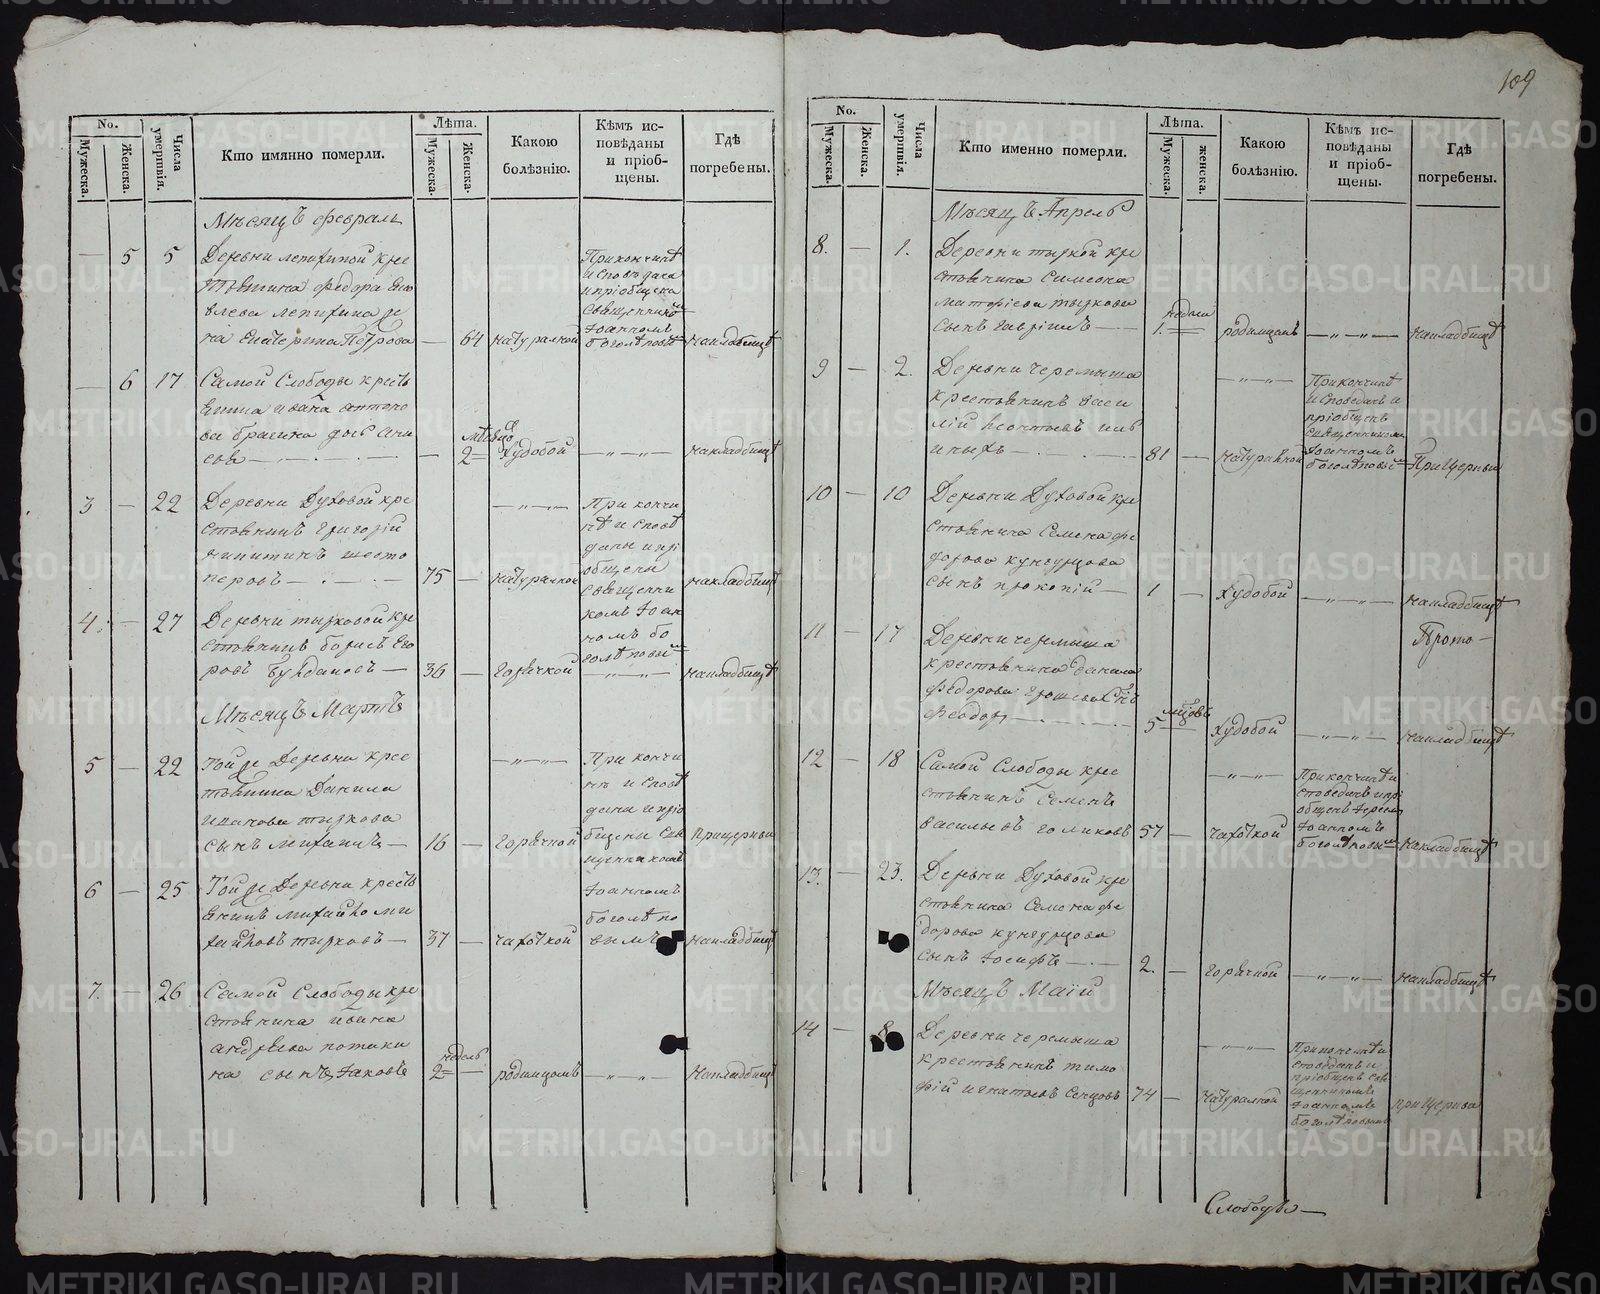 109
No.
Мужеска.
Женска.
Числа умершвія.
Кто имянно померли.
Лѣта.
Мужеска.
Женска.
Какою болѣзнію.
Кѣмъ исповѣданы и пріобщены.
Гдѣ погребены.
Мѣсяцъ февраль
— 5 5 Деревни лепихиной кре
стьянина федора
влева лепихина же
на Екатерина Петрова — 64 натуралной
При кончинѣ
исповѣдана
и пріобщена
священнико
Іоанномъ
боголѣповы
на кладбищѣ
— 6 17 Самой Слободы кресть
янина ивана антоно
ва брагина дочь Ани
сья — — 2 худобой —„—„— на кладбищѣ
3 — 22 Деревни Духовой кре
стьянинъ григорій
никитинъ шесто
перовъ — 75 — натуралной
—„—„—
При кончи
нѣ исповѣ
даны и прі
общены
священни
комъ Іоан
номъ бо
голѣповы
на кладбищѣ
4. — 27 Деревни тырковой кре
стьянинъ борисъ Его
ровъ — 36 — горячкой —„—„— на кладбищѣ
Мѣсяцъ Мартъ
5 — 22 Той же Деревни крес
тьянина Данила
тыркова
сынъ михаилъ — 16 — горячкой
—„—„—
При кончи
нѣ исповѣ
даны и прио
бщены свя
щенникомъ
Іоанномъ
боголѣпо
вымъ
при церкви
6 — 25 Той же Деревни кресть
янинъ михайло ми
хайловъ тырковъ — 37 — чахоткой на кладбищѣ
7. — 26 Самой Слободы кре
стьянина ивана
андреева потаки
на сынъ Іаковъ
недель
2 — родимцомъ —„—„— на кладбищѣ
No.
Мужеска.
Женска.
Числа умершвія.
Кто именно померли.
Лѣта.
Мужеска.
женска.
Какою болѣзнію.
Кѣмъ исповѣданы и пріобщены.
Гдѣ погребены.
Мѣсяцъ Апрель
8. — 1. Деревни тыркой кре
стьянина Симеона
матфіева тыркова
сынъ гавріилъ —
недели
1. — родимцомъ —„—„— на кладбищѣ
9 — 2. Деревни черемыша
крестьянинъ васи
лій леонтьевъ иль
иныхъ — 81 — натуралной
—„—„—
При кончинѣ
исповеданъ и
пріобщенъ
священникомъ
Іоанномъ
боголѣповы
При Церкви
10 — 10 Деревни Духовой кре
стьянина Семена фе
дорова кунгурцова
сынъ прокопій — 1 — худобой —„—„— на кладбищѣ
11 — 17 Деревни черемыша
крестьянина данила
федорова сынъ
феодоръ —
мцовъ
5 — худобой —„—„— на кладбищѣ
12 — 18 Самой Слободы кре
стьянинъ Семенъ
васильевъ голиковъ 57 — чахоткой
—„—„—
При кончинѣ и
споведанъ и прі
общенъ Іереемъ
Іоанномъ
боголѣповы
на кладбищѣ
13. — 23. Деревни Духовой кре
стьянина Семена фе
дорова кунгурцова
сынъ Іосифъ — 2. — горячкой —„—„— на кладбищѣ
Мѣсяцъ Маій
14 — 8 Деревни черемыша
крестьянинъ тимо
фій игнатьевъ Сенцовъ 74 — натуралной
—„—„—
При кончинѣ и
споведанъ и
пріобщенъ свя
щенникомъ
Іоанномъ
боголѣповымъ
при Церкви
Слободѣ —
METRIKI.GASO-URAL.RU